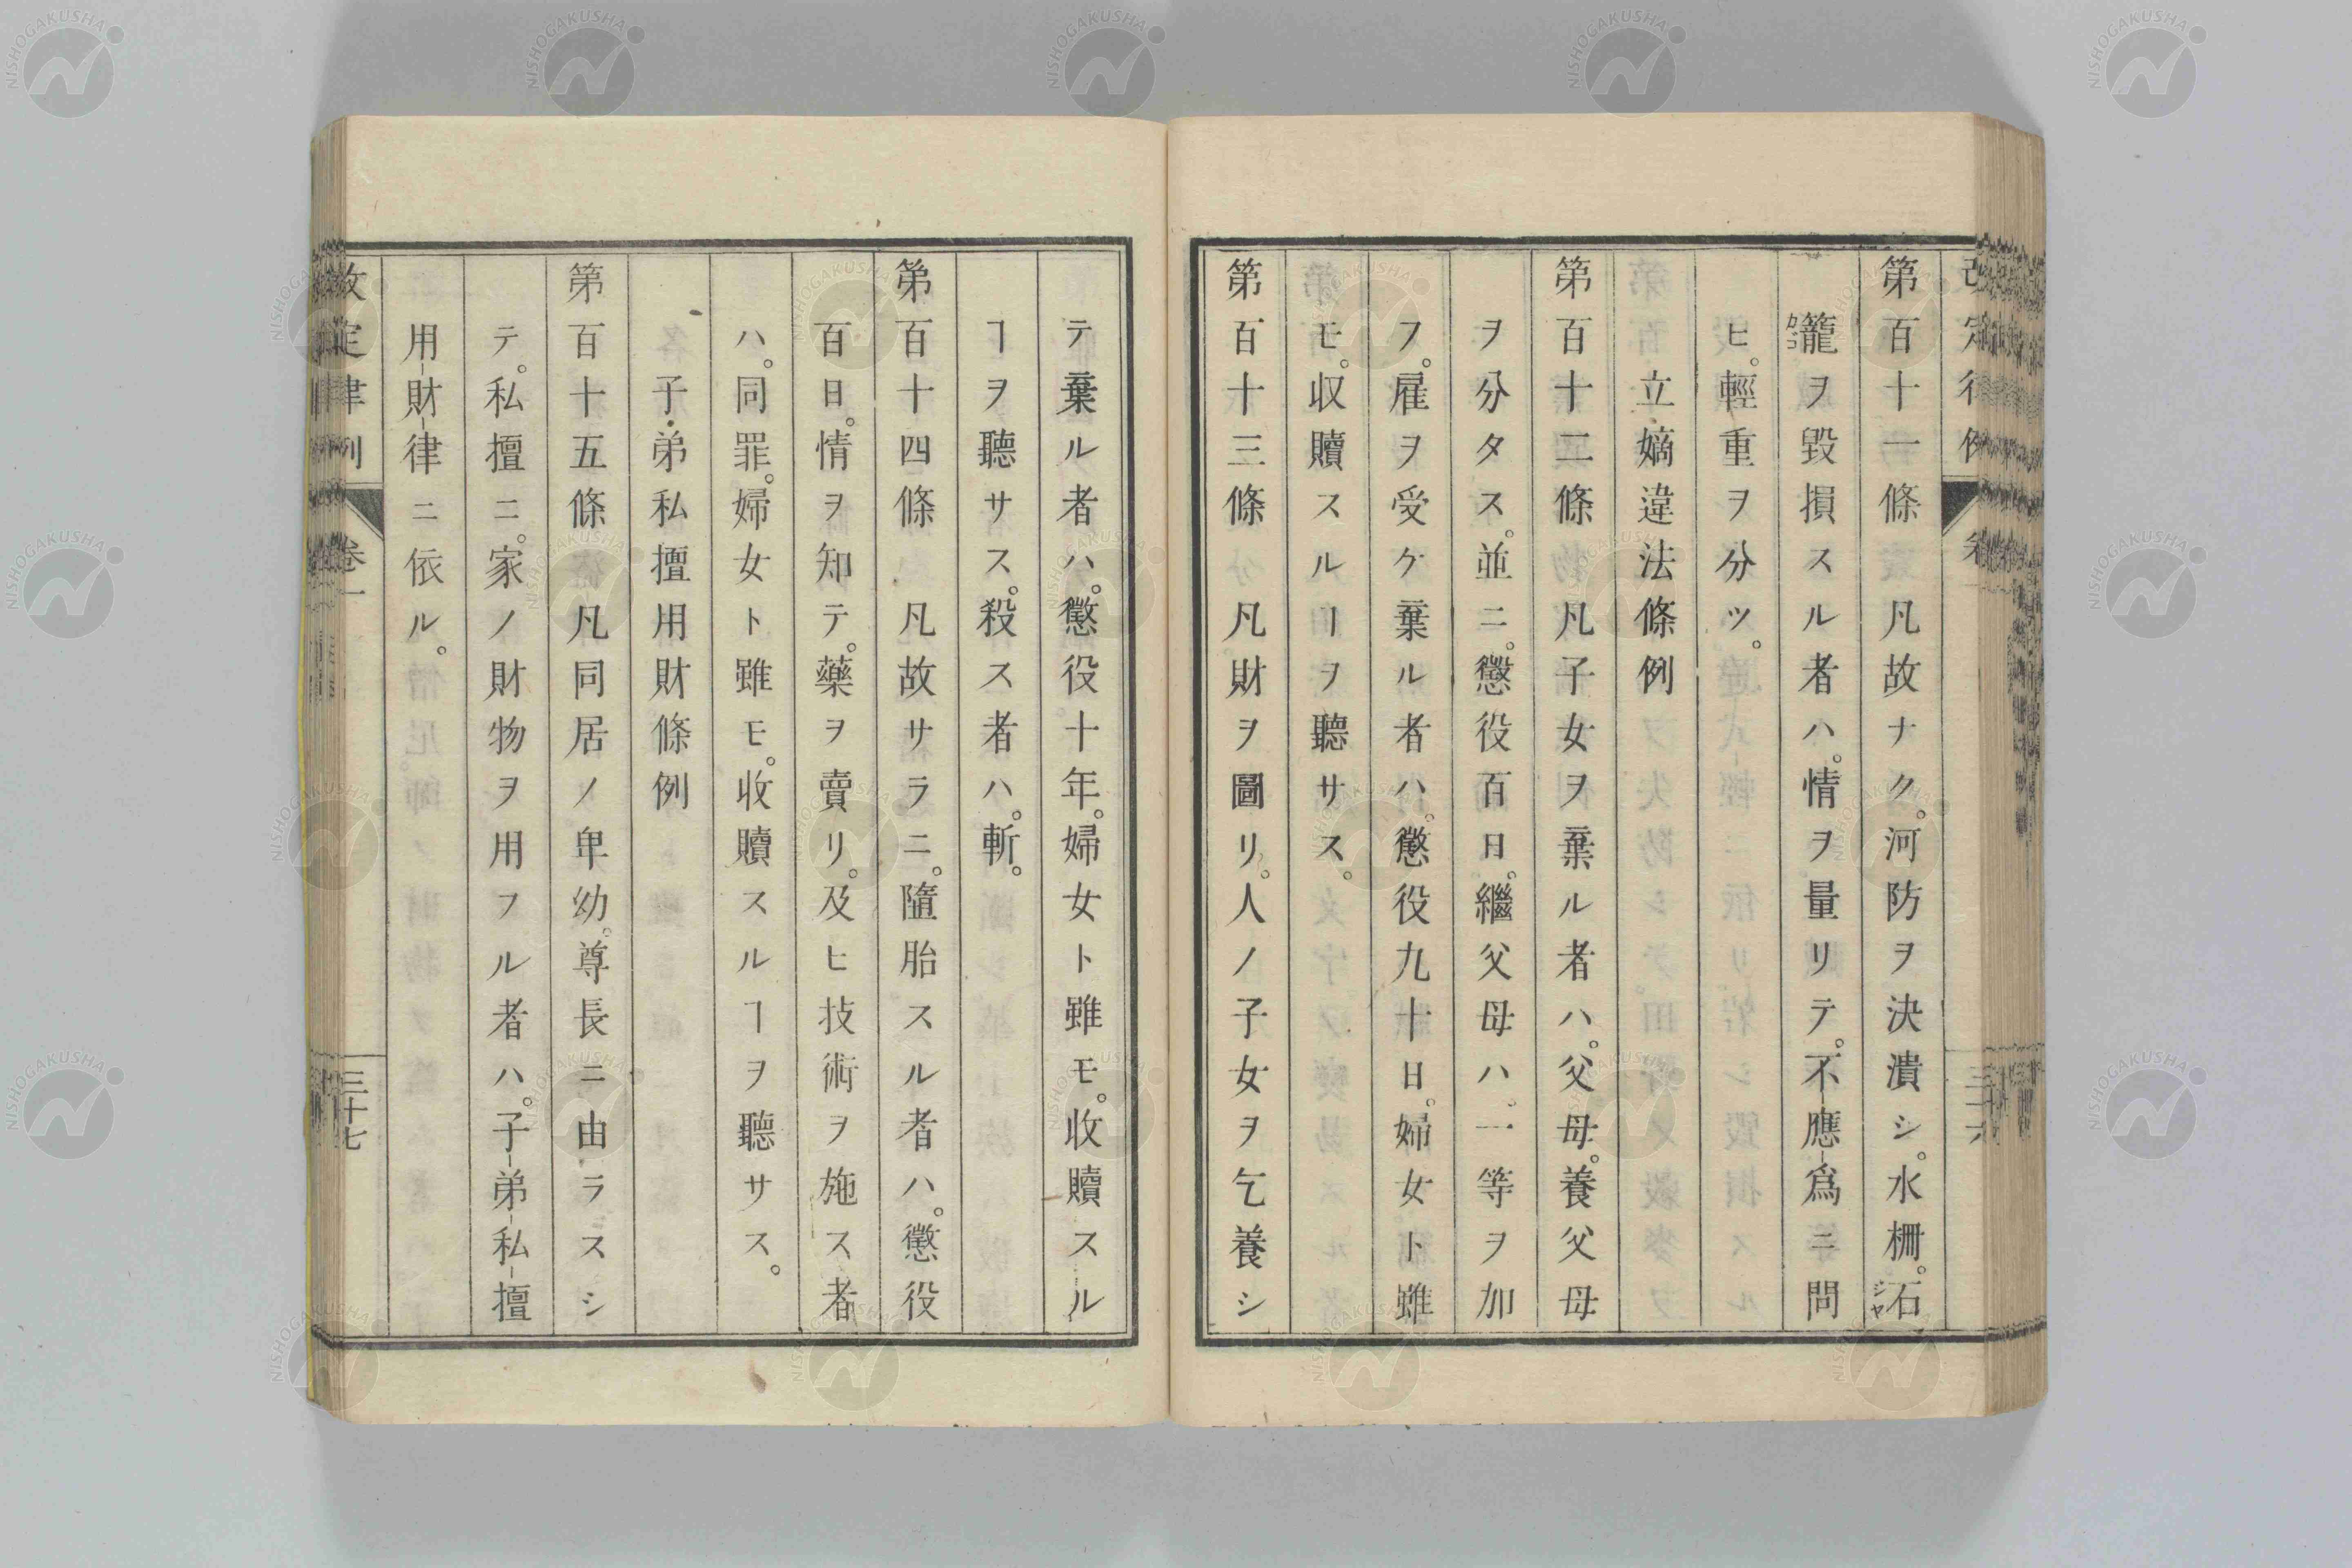 改定律例 卷一 三十六
第百十一條 凡故ナク。河防ヲ決潰シ。水柵。石
籠ヲ毀損スル者ハ。情ヲ量リテ。不應爲ニ問
ヒ。輕重ヲ分ツ。
立嫡違法條例
第百十二條 凡子女ヲ棄ル者ハ。父母。養父母
ヲ分タス。並ニ。懲役百日。繼父母ハ。一等ヲ加
フ。雇ヲ受ケ棄ル者ハ。懲役九十日。婦女ト雖
モ。収贖スルヿヲ聽サス。
第百十三條 凡財ヲ圖リ。人ノ子女ヲ乞養シ
テ棄ル者ハ。懲役十年。婦女ト雖モ。收贖スル
ヿヲ聽サス。殺ス者ハ。斬。
第百十四條 凡故サラニ。隨胎スル者ハ。懲役
百日。情ヲ知テ。藥ヲ賣リ。及ヒ技術ヲ施ス者
ハ。同罪。婦女ト雖モ。收贖スルヿヲ聽サス。
子弟私擅用財條例
第百十五條 凡同居ノ卑幼。尊長ニ由ラスシ
テ。私擅ニ。家ノ財物ヲ用フル者ハ。子弟私擅
用財律ニ依ル。
改定律例 卷一 三十七
NISHOGAKUSHA